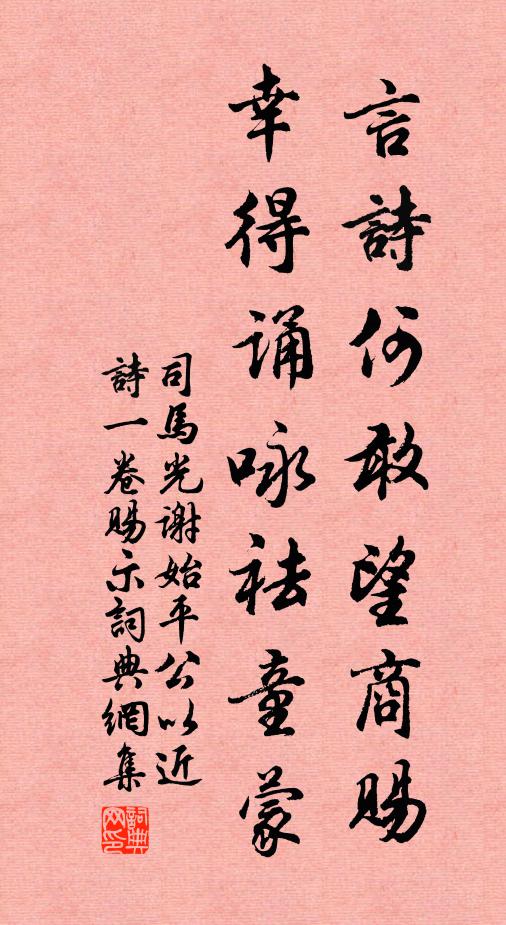 言詩何敢望商賜
幸得诵咏祛童蒙
司馬光謝始平公以近
詩一卷賜示詞典網集
詞典网印